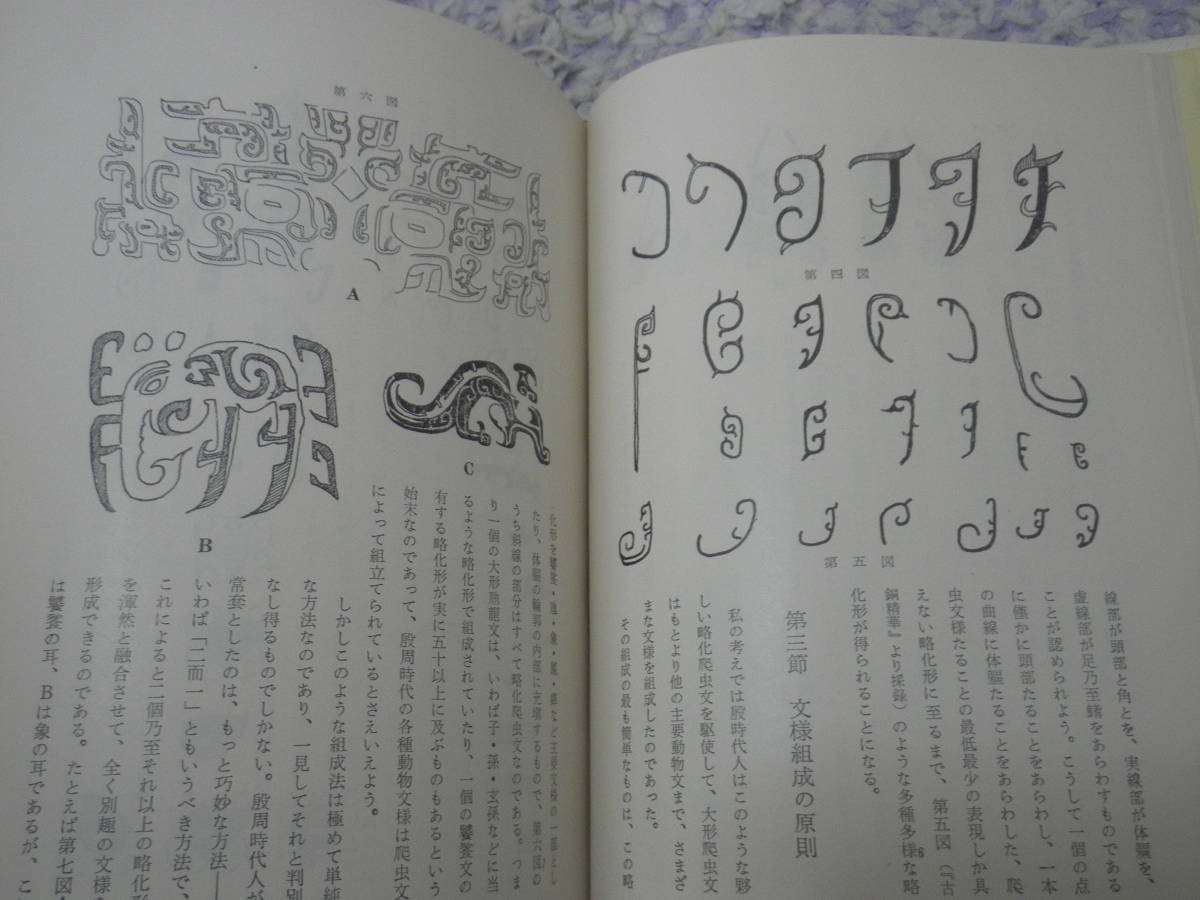 第四図
第五図
線部が頭部と角とを、実線部が体軀を、
虚線部が足乃至鰭をあらわすものである
ことが認められよう。こうして一個の点
に僅かに頭部たることをあらわし、一本
の曲線に体軀たることをあらわした、爬
虫文様たることの最低最少の表現しか具
えない略化形に至るまで、第五図(『古
銅精華』より採録)のような多種多様な略
化形が得られることになる。
第三節 文様組成の原則
私の考えでは殷時代人はこのような夥
しい略化爬虫文を駆使して、大形爬虫文
はもとより他の主要動物文まで、さまざ
まな文様を組成したのであった。
その組成の最も簡単なものは、この略
第六図
A
B
C
化形を饕餮・
たり、体軀の輪郭の内部に充塡するもので、第六図の
うち斜線の部分はすべて略化爬虫文なのである。つま
り一個の大形虺龍文は、いわば子・孫・玄孫などに当
るような略化形で組成されていたり、一個の饕餮文の
有する略化形が実に五十以上に及ぶものもあるという
始末なのであって、殷周時代の各種動物文様は爬虫文
によって組立てられているとさえいえよう。
しかしこのような組成法は極めて単純
な方法なのであり、一見してそれと判別
なし得るものでしかない。殷周時代人が
常套としたのは、もっと巧妙な方法――
いわば「二而一」ともいうべき方法で、
これによると二個乃至それ以上の略化形
を渾然と融合させて、全く別趣の文様を
形成できるのである。たとえば第七図A
は饕餮の耳、Bは象の耳であるが、こ